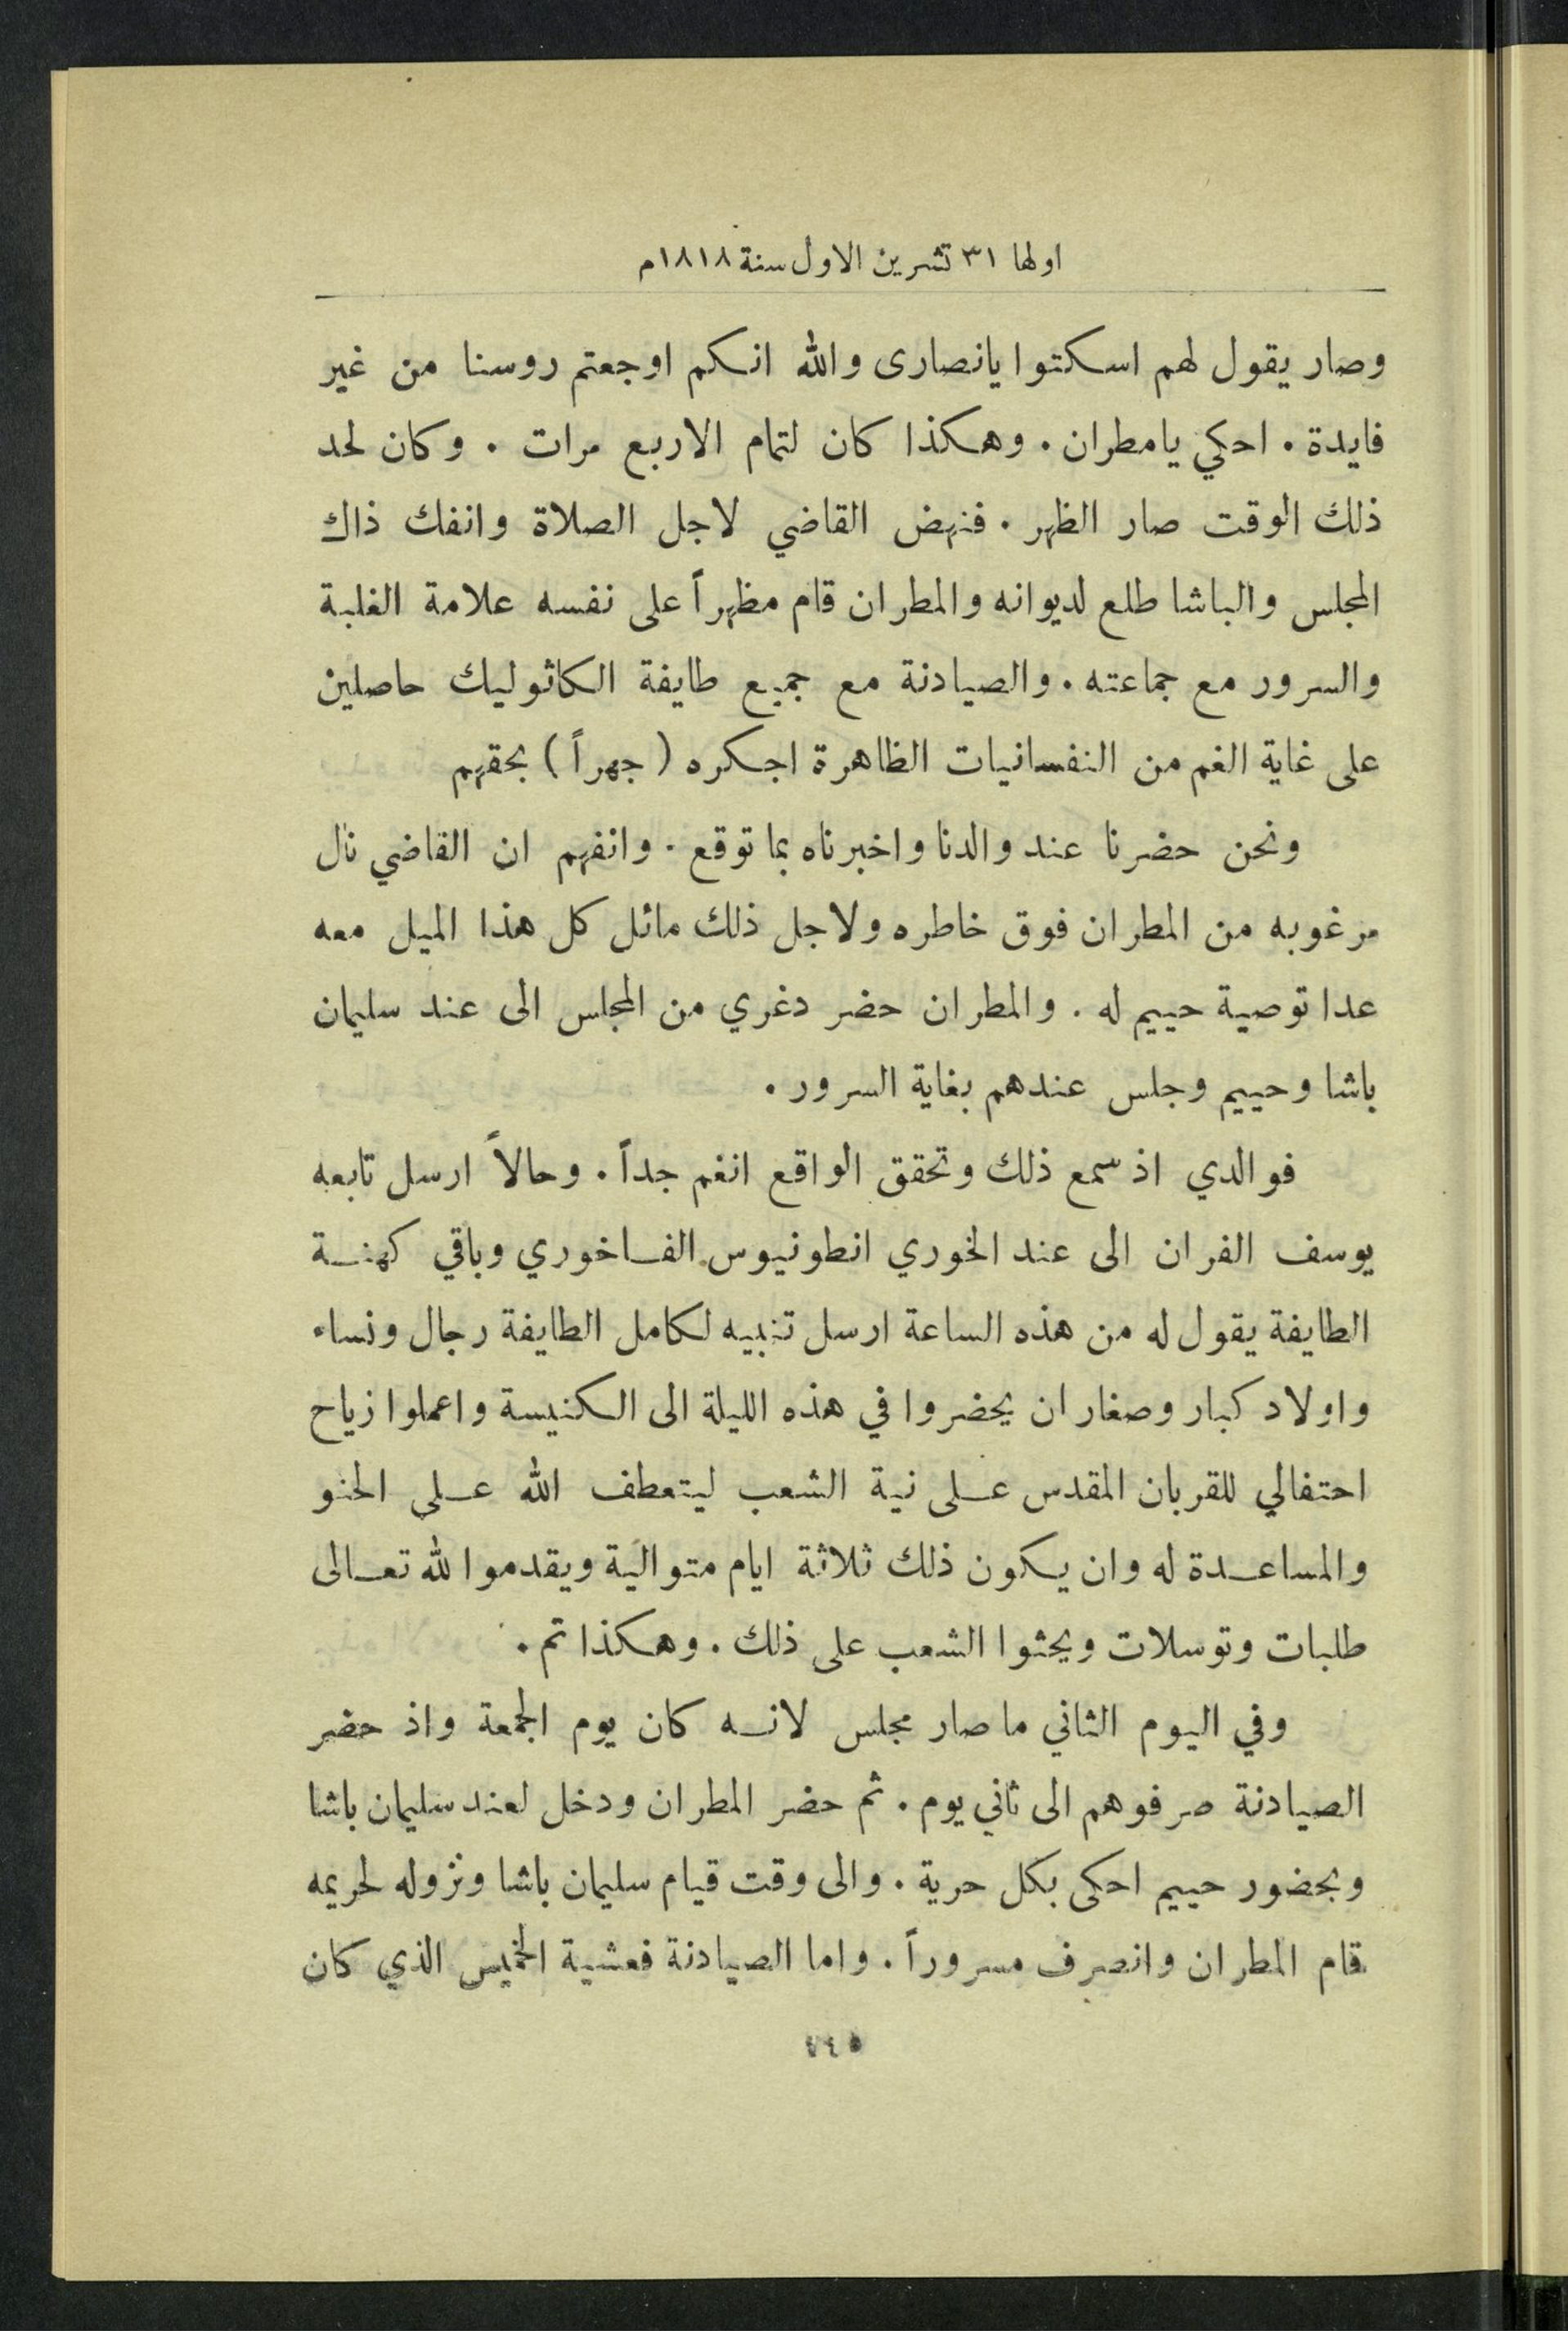 اولها ٣١ تشرين الاول سنة ١٨١٨م
وصار يقول لهم اسكتوا يانصارى والله انكم اوجعتم روسنا من غير
فايدة . احكي يامطران . وهكذا كان لتمام الاربع مرات . وكان لحد
ذلك الوقت صار الظهر . فنهض القاضي لاجل الصلاة وانفك ذاك
المجلس والباشا طلع لديوانه والمطران قام مظهراً على نفسه علامة الغلبة
والسرور مع جماعته . والصيادنة مع جميع طايفة الكاثوليك حاصلين
على غاية الغم من النفسانيات الظاهرة اجكره (جهراً) بحقهم
ونحن حضرنا عند والدنا واخبرناه بما توقع . وانفهم ان القاضي نال
مرغوبه من المطران فوق خاطره ولاجل ذلك مائل كل هذا الميل معه
عدا توصية حييم له . والمطران حضر دغري من المجلس الى عند سليمان
باشا وحييم وجلس عندهم بغاية السرور .
فوالدي اذ سمع ذلك وتحقق الواقع انغم جداً . وحالاً ارسل تابعه
يوسف الفران الى عند الخوري انطونيوس الفاخوري وباقي كهنة
الطايفة يقول له من هذه الساعة ارسل تنبيه لكامل الطايفة رجال ونساء
واولاد كبار وصغار ان يحضروا في هذه الليلة الى الكنيسة واعملوا زياح
احتفالي للقربان المقدس على نية الشعب ليتعطف الله على الحنو
والمساعدة له وان يكون ذلك ثلاثة ايام متوالية ويقدموا لله تعالى
طلبات وتوسلات ويحثوا الشعب على ذلك . وهكذا تم .
وفي اليوم الثاني ما صار مجلس لانه كان يوم الجمعة واذ حضر
الصيادنة صرفوهم الى ثاني يوم . ثم حضر المطران ودخل لعند سليمان باشا
وبحضور حييم احكى بكل حرية . والى وقت قيام سليمان باشا ونزوله لحريمه
قام المطران وانصرف مسروراً . واما الصيادنة فعشية الخميس الذي كان
٧٤٥